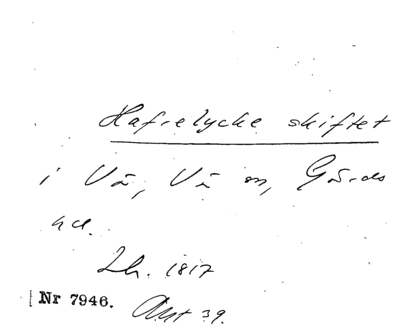 Hafrelycke skiftet
i Vä, Vä sn, Gärds
hd.
Lh. 1817
Nr 7946. Akt 39.